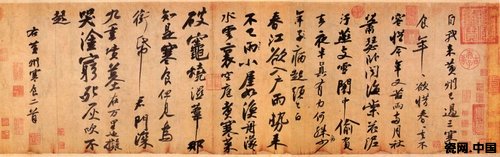 自我來黃州已過三寒
食年〻欲惜春春去不
容惜今年又苦雨兩月秋
蕭瑟卧聞海棠花泥
汙燕支雪闇中偷負
去夜半真有力何殊少
年子病起頭已白
春江欲入戶雨勢來
不已雨小屋如漁舟濛〻
水雲裏空庖煮寒菜
破竈燒濕葦那
知是寒食但見烏
銜帋君門深
九重墳墓在萬里也擬
哭塗窮死灰吹不
起
右黃州寒食二首
瓷网.中国